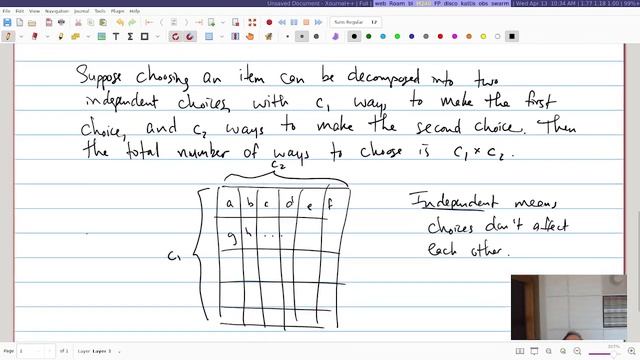 Unsaved Document - Xournal++
File Edit View Navigation Journal Tools Plugin Help
Sans Regular 12
Wed Apr 13 10:34 AM
Suppose choosing an item can be decomposed into two
independent choices, with c1 ways to make the first
choice, and c2 ways to make the second choice. Then
the total number of ways to choose is c1 × c2.
c2
a b c d e f
g h ...
c1
Independent means
choices don't affect
each other.
Page 1 of 1 Layer Layer 1